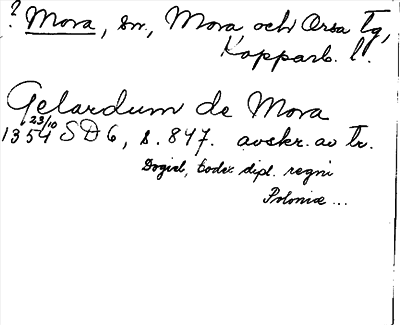 ? Mora, sn, Mora och Orsa tg,
Kopparb. l.
Gelardum de Mora
1354 23/10 SD6, s. 847. avskr. av tr.
Dogiel, codex dipl. regni
Poloniæ ...